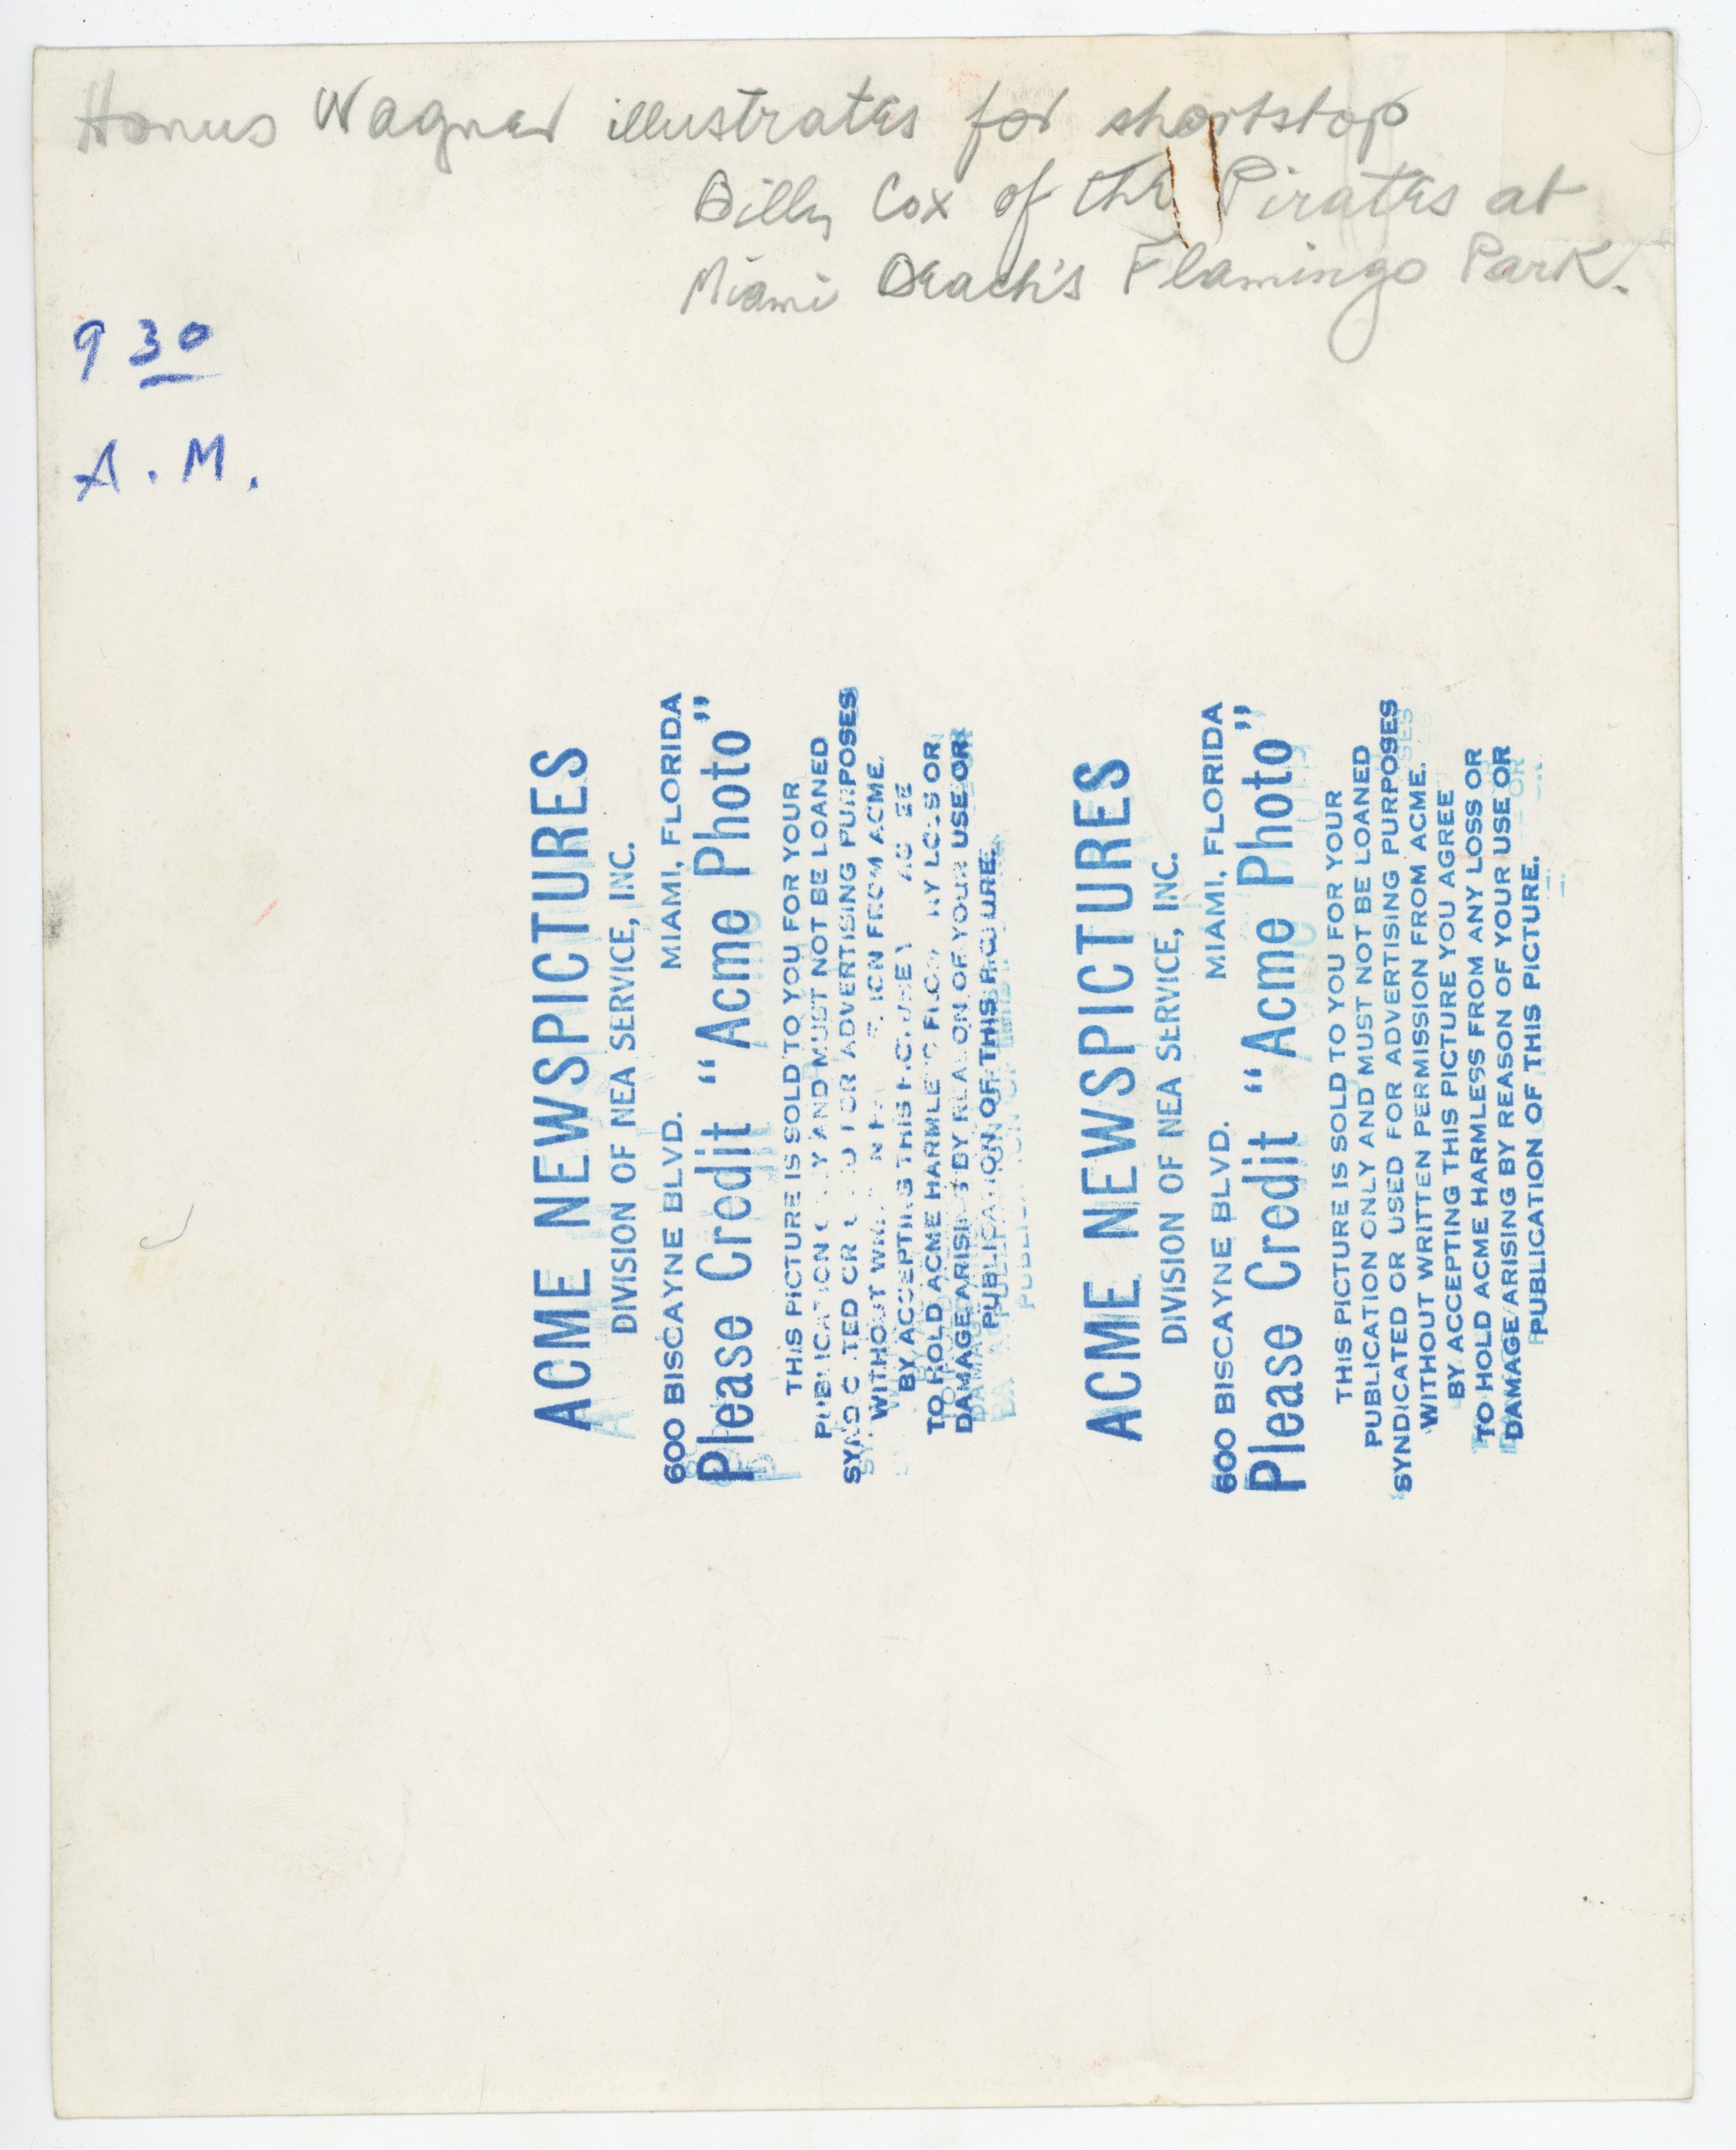 Honus Wagner illustrates for shortstop
Billy Cox of the Pirates at
Miami Beach's Flamingo Park.
9 30
A.M.
ACME NEWSPICTURES
DIVISION OF NEA SERVICE, INC.
600 BISCAYNE BLVD. MIAMI, FLORIDA
Please Credit "Acme Photo"
THIS PICTURE IS SOLD TO YOU FOR YOUR
PUBLICATION AND MUST NOT BE LOANED
SYNDICATED OR FOR ADVERTISING PURPOSES
WITHOUT FROM ACME.
BY ACCEPTING THIS PICTURE
TO HOLD ACME HARMLESS FROM ANY LOSS OR
DAMAGE ARISING BY REASON OF YOUR USE OR
PUBLICATION OF THIS PICTURE.
ACME NEWSPICTURES
DIVISION OF NEA SERVICE, INC.
600 BISCAYNE BLVD. MIAMI, FLORIDA
Please Credit "Acme Photo"
THIS PICTURE IS SOLD TO YOU FOR YOUR
PUBLICATION ONLY AND MUST NOT BE LOANED
SYNDICATED OR USED FOR ADVERTISING PURPOSES
WITHOUT WRITTEN PERMISSION FROM ACME.
BY ACCEPTING THIS PICTURE YOU AGREE
TO HOLD ACME HARMLESS FROM ANY LOSS OR
DAMAGE ARISING BY REASON OF YOUR USE OR
PUBLICATION OF THIS PICTURE.